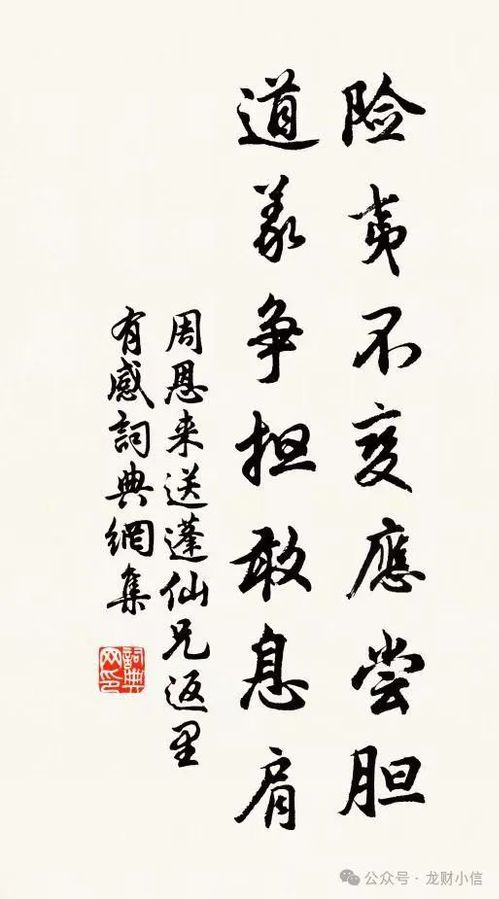 险夷不变應尝胆
道义争担敢息肩
周恩来送蓬仙兄返里
有感詞典網集
詞典网印
公众号·龙财小信